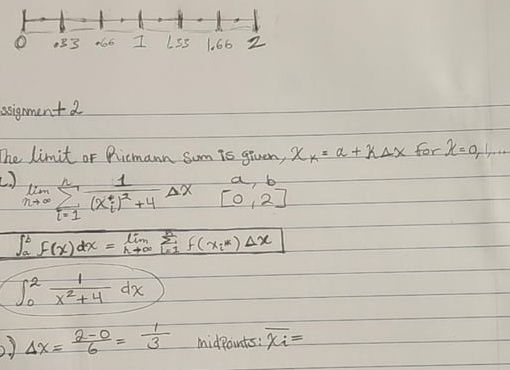 0 .33 .66 1 1.33 1.66 2
ssignment 2
The limit of Riemann sum is given, Xₖ = a + kΔx for k=0,1,...
.) lim n→∞ n Σ i=1 1/((xᵢ*)²+4) Δx a, b [0,2]
∫ₐᵇ f(x)dx = lim n→∞ n Σ i=1 f(xᵢ*) Δx
∫₀² 1/(x²+4) dx
.) Δx = (2-0)/6 = 1/3 midpoints: x̄ᵢ =